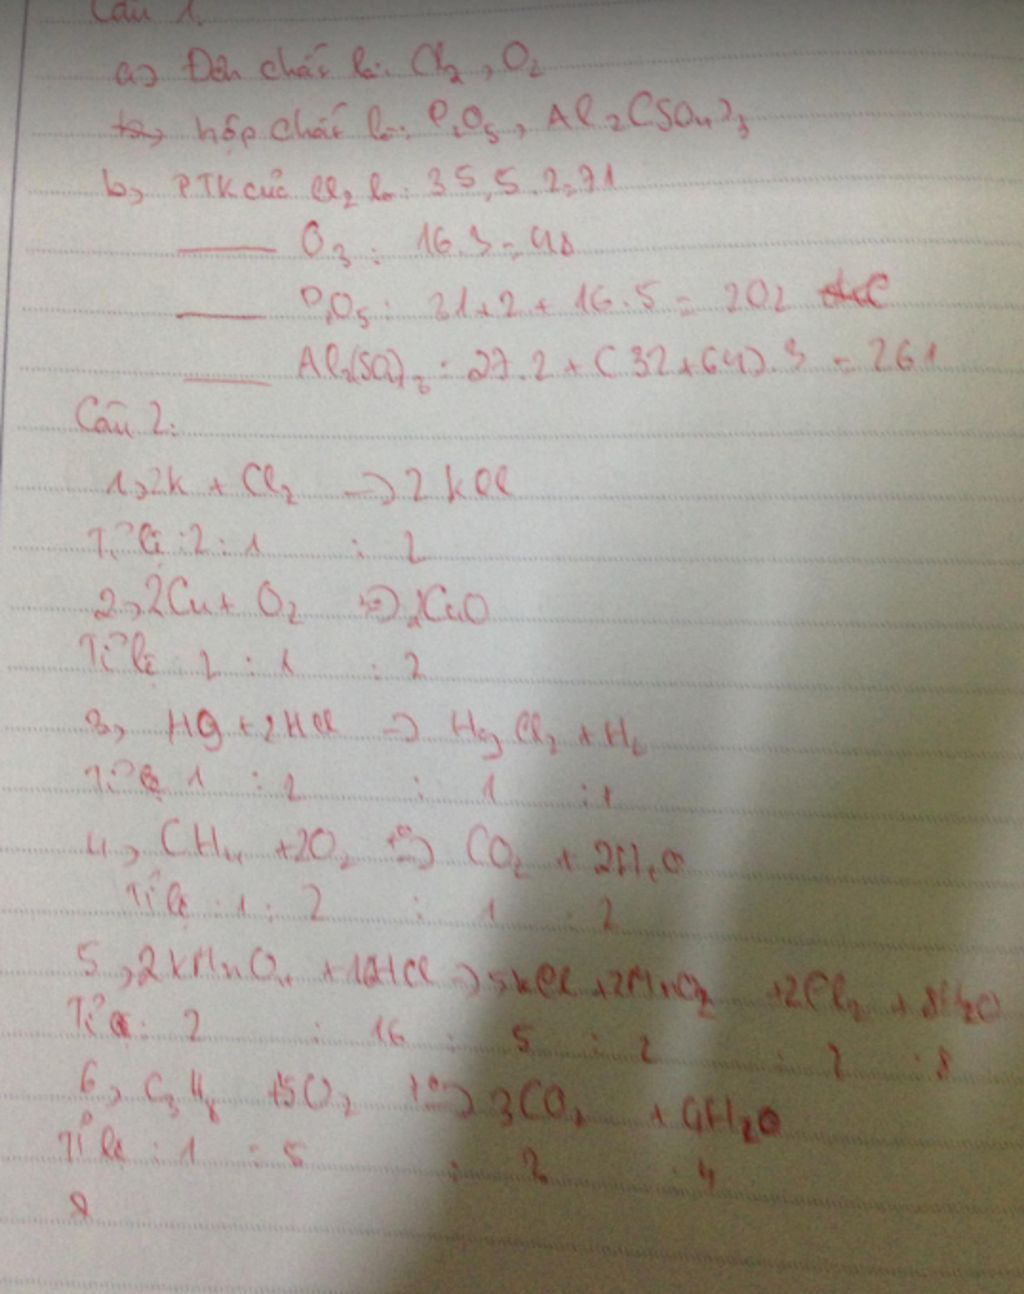 Câu 1.
a, Đơn chất là: Cl2, O2
hợp chất là: P2O5, Al2(SO4)3
b, PTK của Cl2 là: 35,5.2=71
O3: 16.3=48
P2O5: 31.2+16.5=202
Al2(SO4)3: 27.2+(32+64).3=261
Câu 2:
1, 2K + Cl2 → 2KCl
Tỉ lệ: 2 : 1 : 2
2, 2Cu + O2 → 2CuO
Tỉ lệ 2 : 1 : 2
3, Hg + 2HCl → HgCl2 + H2
Tỉ lệ 1 : 2 : 1 : 1
4, CH4 + 2O2 t°→ CO2 + 2H2O
Tỉ lệ: 1 : 2 : 1 : 2
5, 2KMnO4 + HCl → KCl + 2MnO2 + 2Cl2 + 8H2O
Tỉ lệ: 2 : 16 : 5 : 2 : 2 : 8
6, C3H8 + 5O2 t°→ 3CO2 + 4H2O
Tỉ lệ: 1 : 5 : 3 : 4